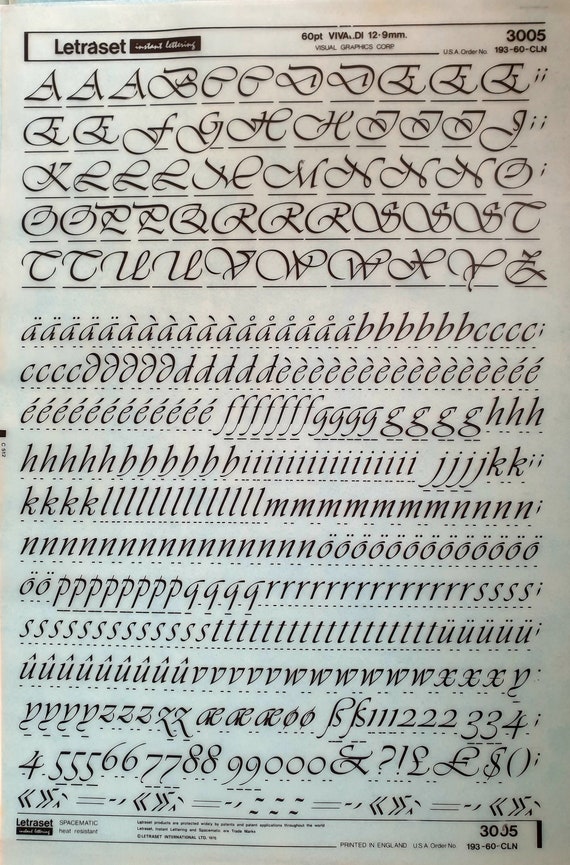 Letraset instant lettering
60pt VIVALDI 12·9mm.
VISUAL GRAPHICS CORP.
U.S.A. Order No.
3005
193-60-CLN
A A A B C C D D E E E
E E F G H H I I I J
K L L L M M N N N O
O O P P Q R R R S S S T
T T U U V W W X Y Z
ääääääààààààåååååååbbbbbbcccc
ccccddddddddddèèèèèèèèèèèèéé
ééééééééééééffffffffgggggggghhh
hhhhhhbbbbbbiiiiiiiiiiiiiiiijjjjkk
kkkkllllllllllllllmmmmmmmmnnnn
nnnnnnnnnnnnnnnnööööööööööö
ööppppppppqqqqrrrrrrrrrrrrrrrssss
sssssssssssssttttttttttttttttttüüüüü
ûûûûûûûûûvvvvvwwwwwxxxy
yyyyzzzzzæææøøßß111222334
4 5556677889900000&?!££$()
«»
Letraset
instant lettering
SPACEMATIC
heat resistant
Letraset products are protected widely by patents and patent applications throughout the world
Letraset, Instant Lettering and Spacematic are Trade Marks
© LETRASET INTERNATIONAL LTD. 1975
PRINTED IN ENGLAND
U.S.A. Order No.
3005
193-60-CLN